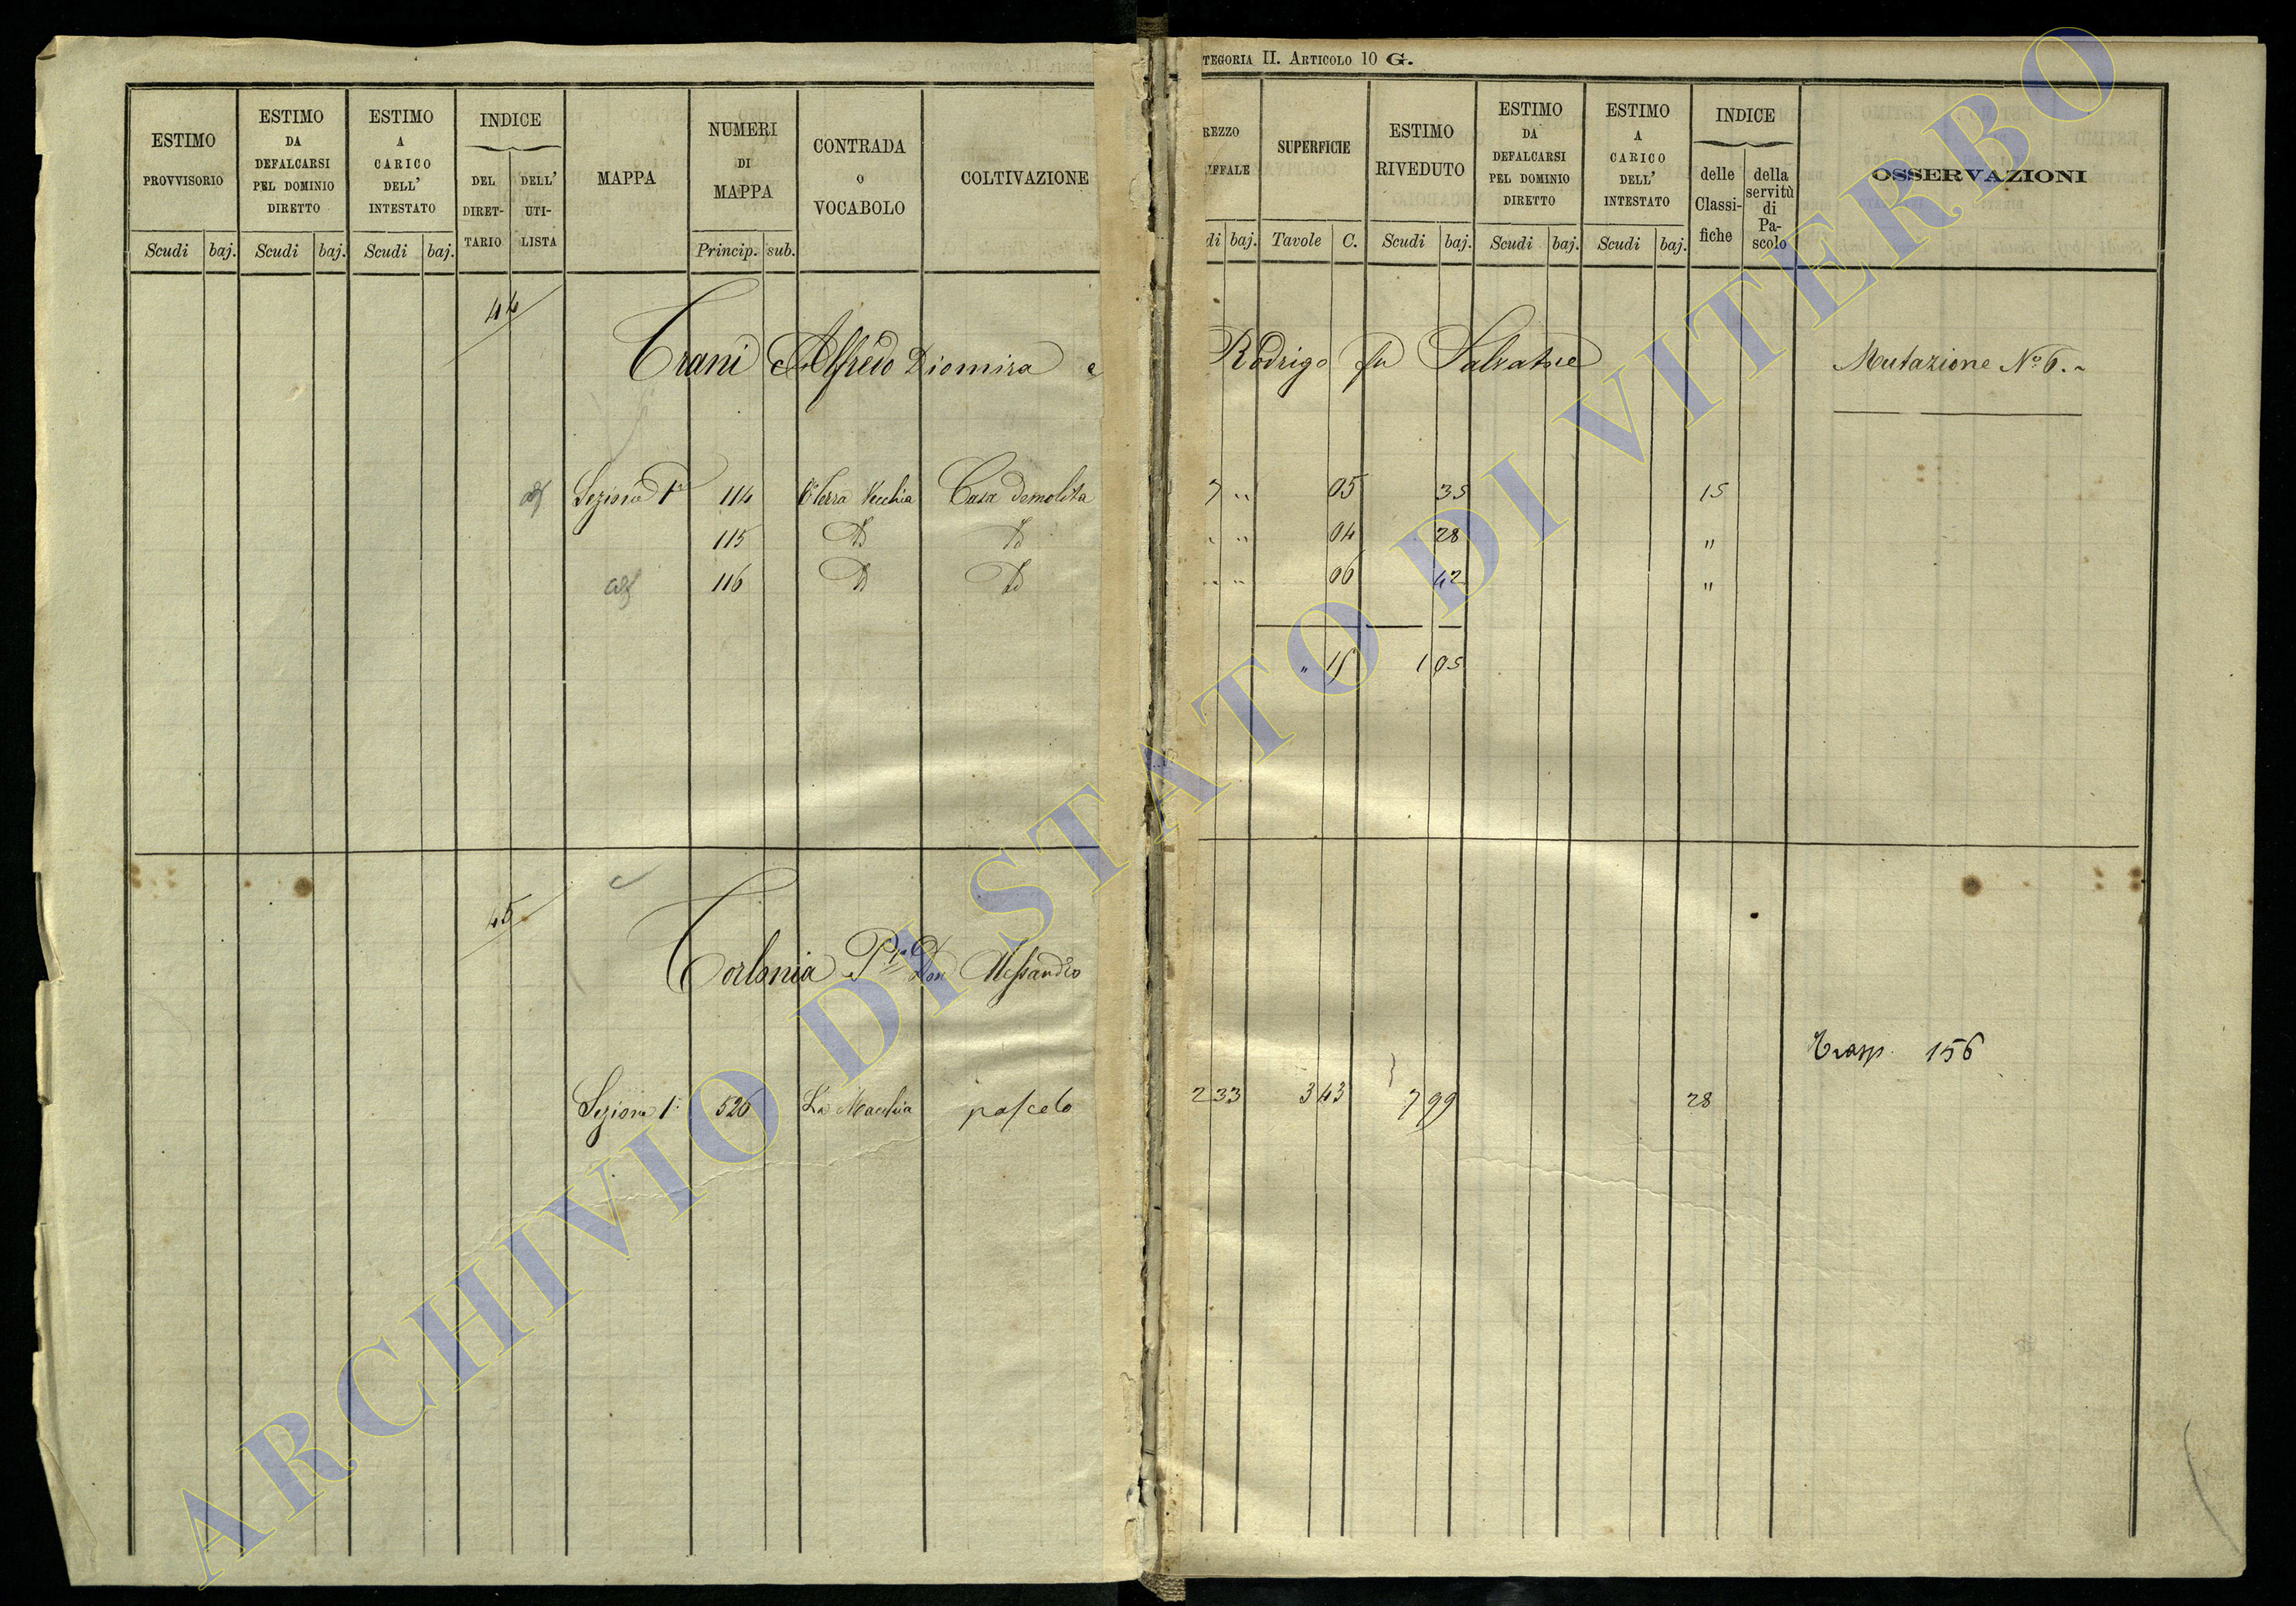 TEGORIA II. ARTICOLO 10 G.
ESTIMO PROVVISORIO
Scudi baj.
ESTIMO DA DEFALCARSI PEL DOMINIO DIRETTO
Scudi baj.
ESTIMO A CARICO DELL' INTESTATO
Scudi baj.
INDICE
DEL DIRET-TARIO
DELL' UTI-LISTA
MAPPA
NUMERI DI MAPPA
Princip. sub.
CONTRADA o VOCABOLO
COLTIVAZIONE
REZZO
IFFALE
di baj.
SUPERFICIE
Tavole C.
ESTIMO RIVEDUTO
Scudi baj.
ESTIMO DA DEFALCARSI PEL DOMINIO DIRETTO
Scudi baj.
ESTIMO A CARICO DELL' INTESTATO
Scudi baj.
INDICE
delle Classi-fiche
della servitù di Pa-scolo
OSSERVAZIONI
44
Trani Alfredo Diomira e Rodrigo fu Salvatore Mutazione N.º 6.
Sezione 1ª 114 Terra Vecchia Casa demolita 7 " 05 35 15
115 Id Id " " 04 28 "
116 Id Id " " 06 42 "
" 15 1 05
45
Torlonia Ppe Don Alessandro
Trasp. 156
Sezione 1ª 526 La Macchia pascolo 2 33 3 43 7 99 28
ARCHIVIO DI STATO DI VITERBO